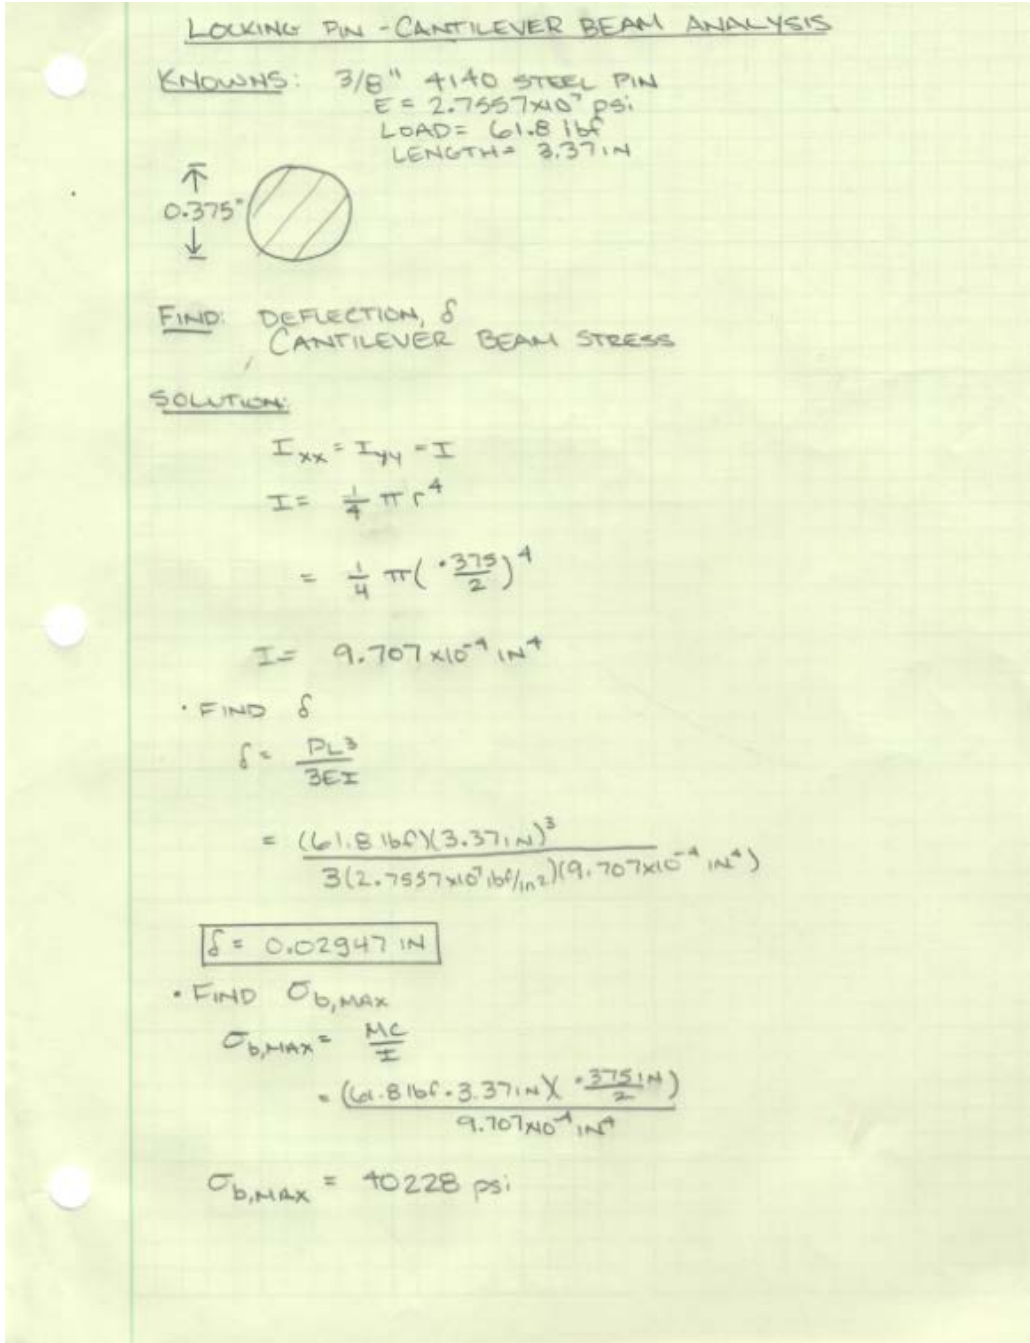 LOCKING PIN - CANTILEVER BEAM ANALYSIS
KNOWNS: 3/8" 4140 STEEL PIN
E = 2.7557x10⁷ psi
LOAD = 61.8 lbf
LENGTH = 3.37 IN
0.375"
FIND: DEFLECTION, δ
CANTILEVER BEAM STRESS
SOLUTION:
Ixx = Iyy = I
I = 1/4 π r⁴
= 1/4 π(.375/2)⁴
I = 9.707 x10⁻⁴ IN⁴
• FIND δ
δ = PL³/3EI
= (61.8 lbf)(3.37 IN)³ / 3(2.7557x10⁷ lbf/in2)(9.707x10⁻⁴ IN⁴)
δ = 0.02947 IN
• FIND σb,MAX
σb,MAX = MC/I
= (61.8 lbf · 3.37 IN)(.375 IN/2) / 9.707x10⁻⁴ IN⁴
σb,MAX = 40228 psi